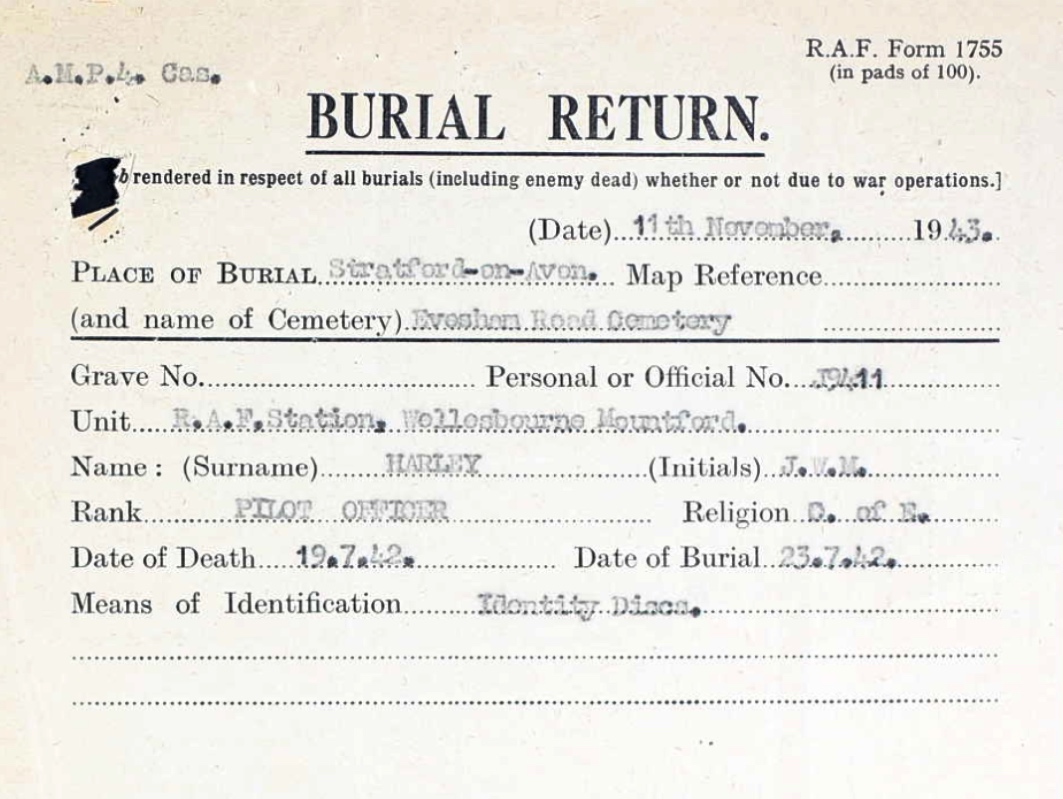 R.A.F. Form 1755
A.M.P.4. Cas.
(in pads of 100).
BURIAL RETURN.
rendered in respect of all burials (including enemy dead) whether or not due to war operations.]
(Date)....11th November,..........1943.
PLACE OF BURIAL Stratford-on-Avon. Map Reference....................
(and name of Cemetery) Evesham Road Cemetery ....................
Grave No................................ Personal or Official No....J9411....................
Unit......R.A.F.Station, Wellesbourne Mountford.....................
Name: (Surname)........HARLEY....................(Initials)..J.W.M.....................
Rank............PILOT OFFICER.................... Religion..C. of E...........
Date of Death.....19.7.42..................... Date of Burial..23.7.42................
Means of Identification..........Identity Discs.....................